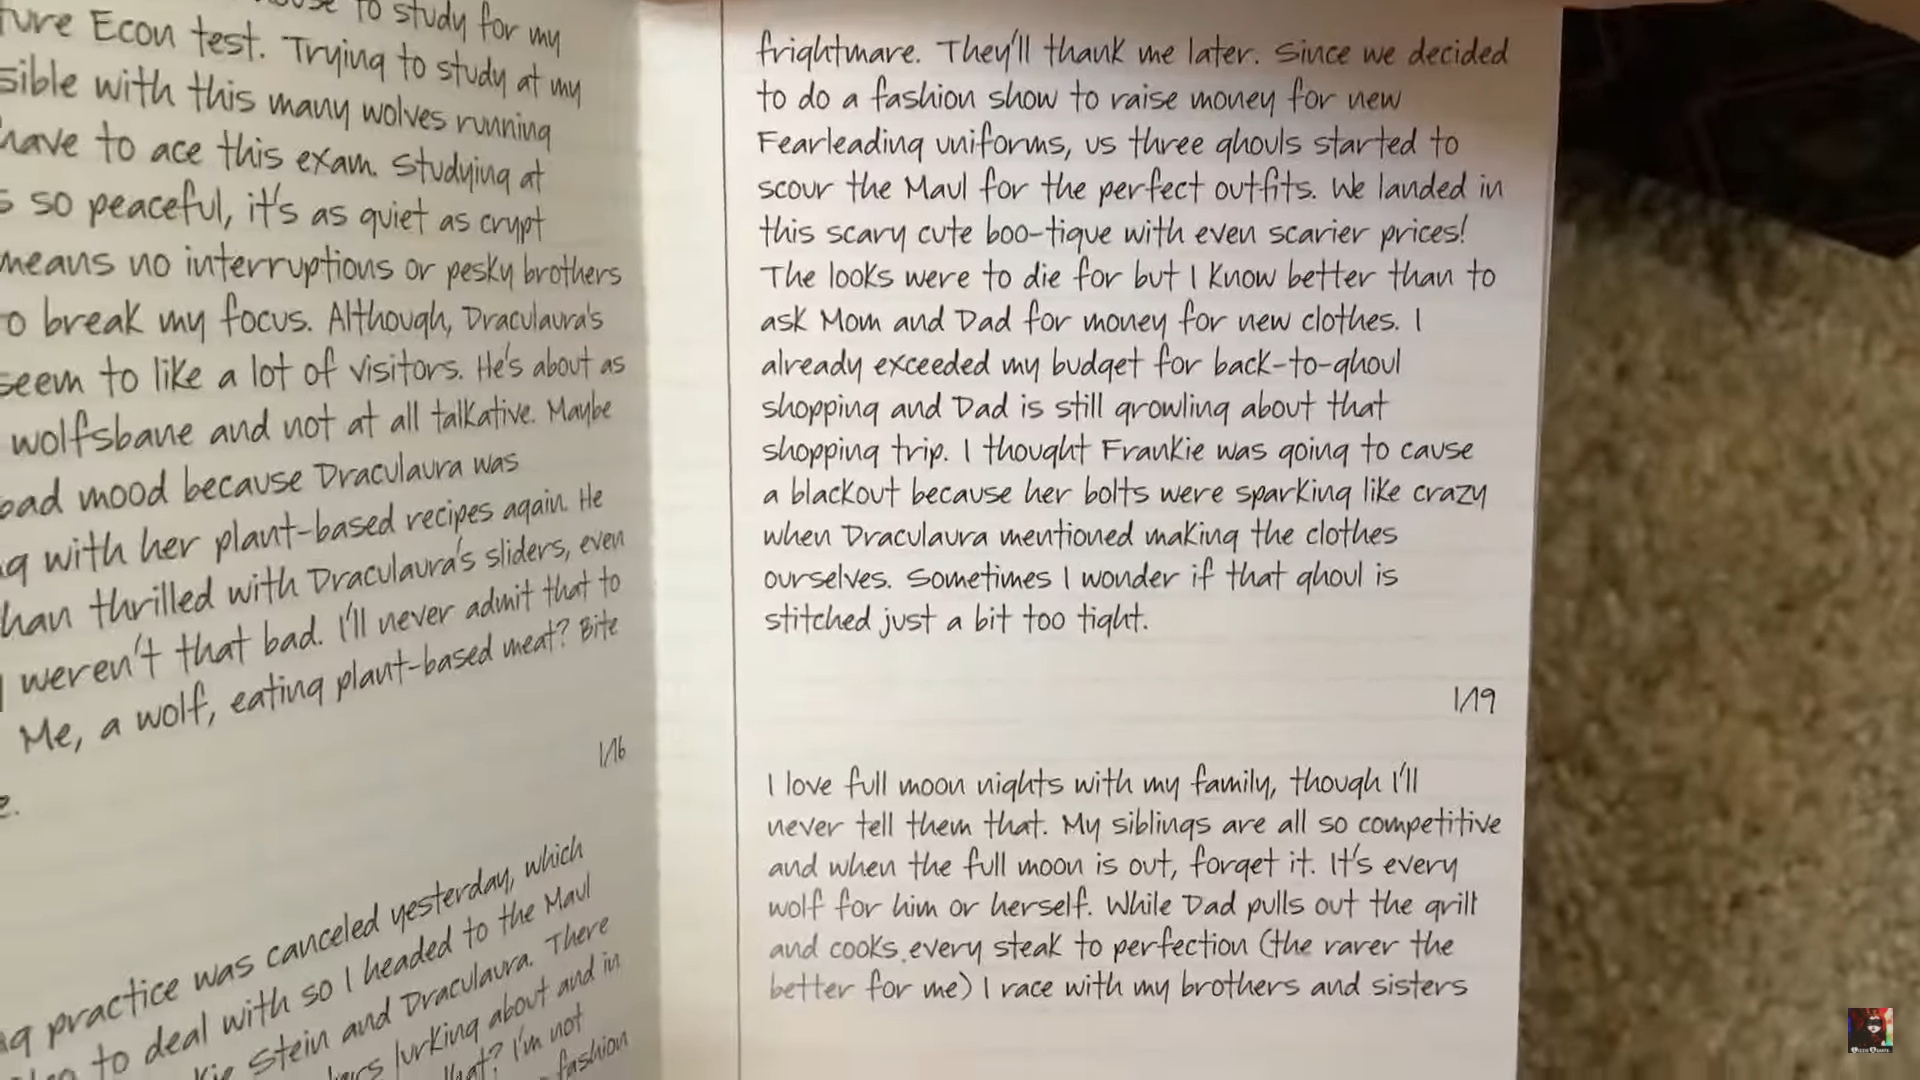 to study for my
ture Econ test. Trying to study at my
sible with this many wolves running
have to ace this exam. Studying at
s so peaceful, it's as quiet as crypt
means no interruptions or pesky brothers
o break my focus. Although, Draculaura's
seem to like a lot of visitors. He's about as
wolfsbane and not at all talkative. Maybe
bad mood because Draculaura was
g with her plant-based recipes again. He
han thrilled with Draculaura's sliders, even
weren't that bad. I'll never admit that to
Me, a wolf, eating plant-based meat? Bite
e.
1/16
g practice was canceled yesterday, which
to deal with so I headed to the Maul
kie Stein and Draculaura. There
lurking about and in
that? I'm not
fashion
frightmare. They'll thank me later. Since we decided
to do a fashion show to raise money for new
Fearleading uniforms, us three ghouls started to
scour the Maul for the perfect outfits. We landed in
this scary cute boo-tique with even scarier prices!
The looks were to die for but I know better than to
ask Mom and Dad for money for new clothes. I
already exceeded my budget for back-to-ghoul
shopping and Dad is still growling about that
shopping trip. I thought Frankie was going to cause
a blackout because her bolts were sparking like crazy
when Draculaura mentioned making the clothes
ourselves. Sometimes I wonder if that ghoul is
stitched just a bit too tight.
1/19
I love full moon nights with my family, though I'll
never tell them that. My siblings are all so competitive
and when the full moon is out, forget it. It's every
wolf for him or herself. While Dad pulls out the grill
and cooks every steak to perfection (the rarer the
better for me) I race with my brothers and sisters